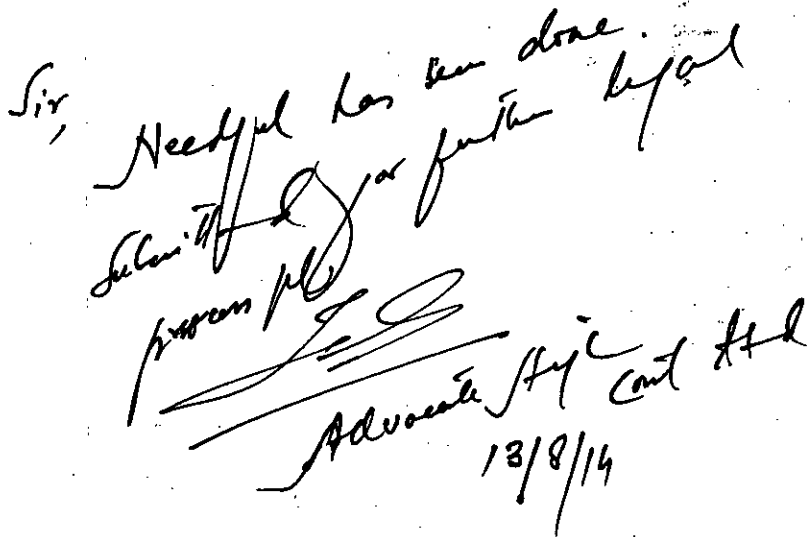 Sir,
Needful has been done.
Submitted for further legal
process pl.
Advocate High Court Atd
13/8/14